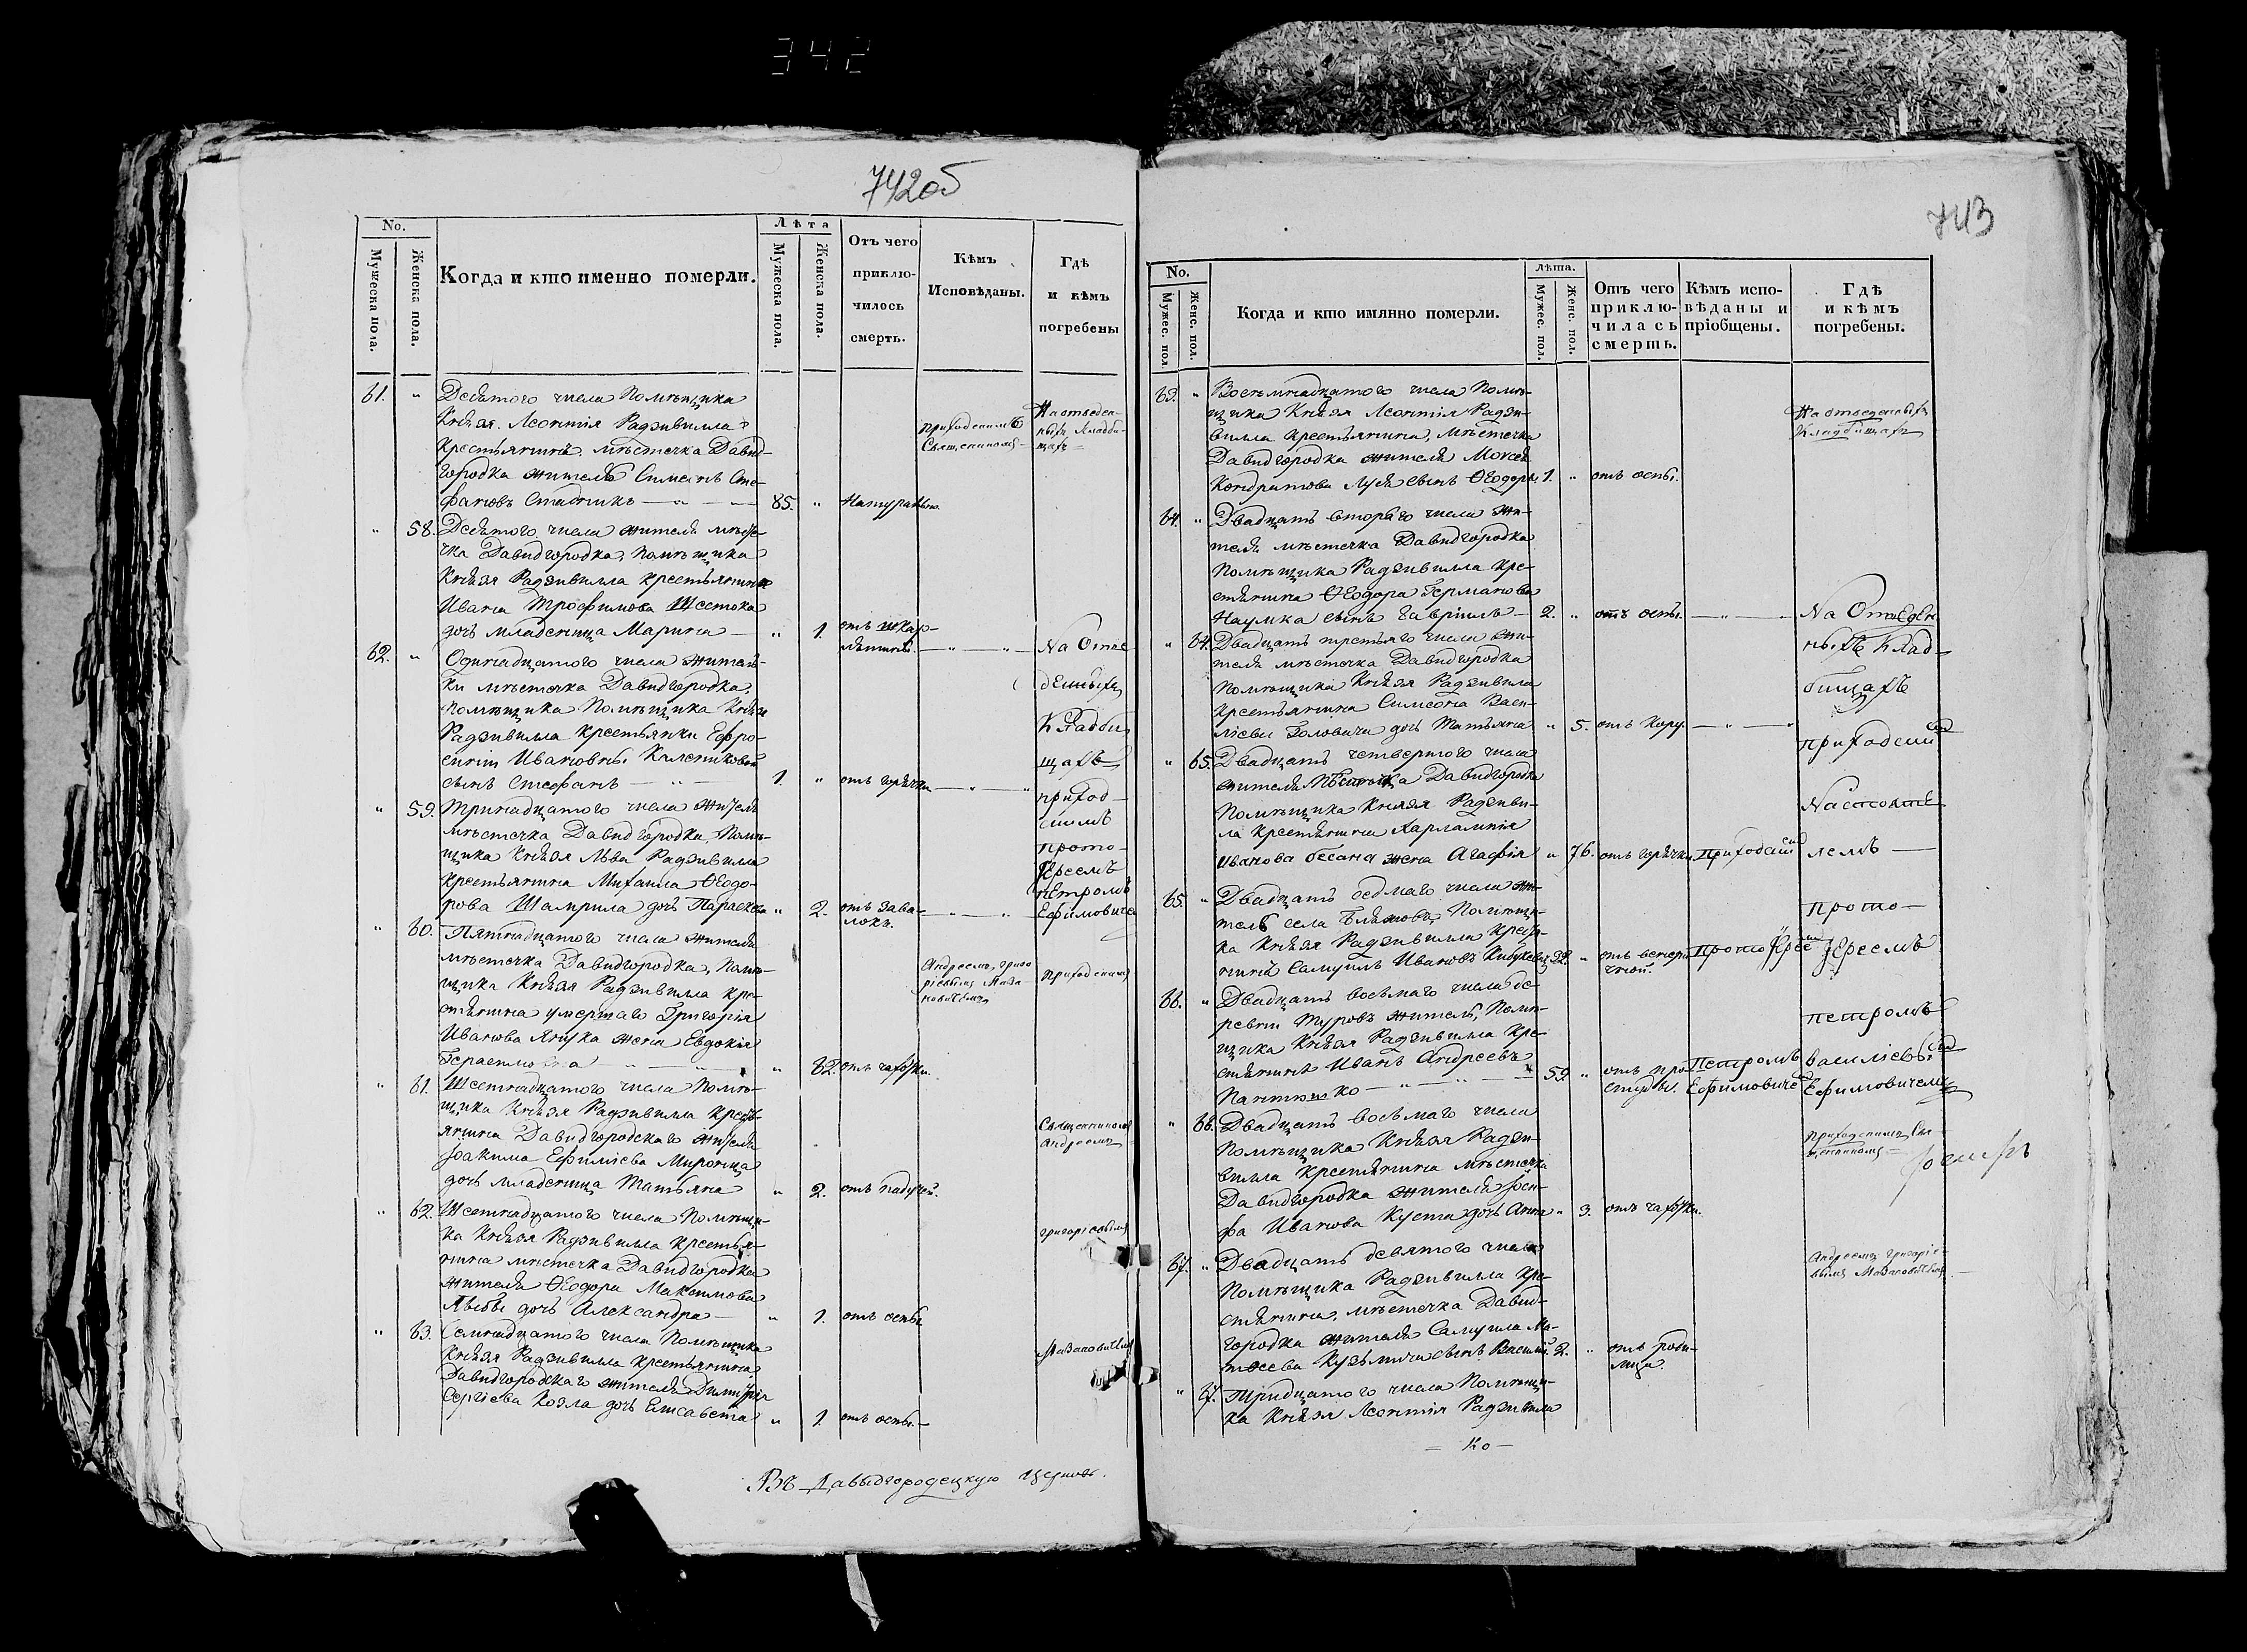 342
742об
No.
Мужеска пола.
Женска пола.
Когда и кто именно померли.
Лѣта
Мужеска пола.
Женска пола.
Отъ чего
приклю-
чилось
смерть.
Кѣмъ
Исповѣданы.
Гдѣ
и кѣмъ
погребены
61. " Десятого числа Помѣщика
Князя Леонтія Радзивилла
Крестьянинъ мѣстечка Давид-
городка житель Симеонъ Сте-
фановъ Стадникъ — " — 85. " Натурально.
приходскимъ
Священникомъ
На отведен-
ныхъ Кладби-
щахъ
" 58. Десятого числа жителя мѣсте-
чка Давидгородка, помѣщика
Князя Радзивилла крестьянина
Ивана Трофимова Шестока
дочь младеница Марина — " 1. отъ шкар-
лятины. — " — " —
62. " Одинадцатого числа житель-
ки мѣстечка Давидгородка,
помѣщика Помѣщика Князя
Радзивилла крестьянки Ефро-
синіи Ивановны
сынъ Стефанъ — " — 1. " отъ горячки — " — "
" 59. Тринадцатого числа жителя
мѣстечка Давидгородка, Помѣ-
щика Князя Льва Радзивилла
крестьянина Михаила Ѳеодо-
рова Шамрила дочь Параскева " 2. отъ зава-
локъ. — " — " —
На Отве-
денныхъ
Кладби-
щахъ
приход-
скимъ
прото-
Іереемъ
Петромъ
Ефимовиче
" 60. Пятнадцатого числа жителя
мѣстечка Давидгородка, Помѣ-
щика Князя Радзивилла кре-
стьянина умершаго Григорія
Иванова Янука жена Евдокія
Герасимова — " — " — " 82. отъ чахотки.
Андреемъ Григо
ріевымъ Маза
новичемъ
приходскимъ
" 61. Шестнадцатого числа Помѣ-
щика Князя Радзивилла кресть-
янина Давидгородскаго жителя
Іоакима Ефиміева Мироница
дочь младеница Татьяна " 2. отъ падучей.
Священникомъ
Андреемъ
" 62. Шестнадцатого числа Помѣщи-
ка Князя Радзивилла крестья-
нина мѣстечка Давидгородка
жителя Ѳеодора Максимова
дочь Александра — " 1. отъ оспы
григоріевымъ
" 63. Семнадцатого числа Помѣщика
Князя Радзивилла крестьянина,
Давидгородскаго жителя Димитрія
Сергіева Козла дочь Елисавета " 1. отъ оспы. —
Мазановичемъ
Въ Давыдгородецкую церковь.
743
No.
Мужес. пол.
Женс. пол.
Когда и кто имянно померли.
лѣта.
Мужес. пол.
Женс. пол.
Отъ чего
приклю-
чилась
смерть.
Кѣмъ испо-
вѣданы и
пріобщены.
Гдѣ
и кѣмъ
погребены.
63. " Восемьнадцатого числа Помѣ-
щика Князя Леонтія Радзи-
вилла крестьянина, мѣстечка
Давидгородка жителя Моисея
Кондратова сынъ Ѳеодоръ 1. " отъ оспы.
На отведенныхъ
Кладбищахъ
64. " Двадцать втораго числа жи-
теля мѣстечка Давидгородка
Помѣщика Радзивилла кре-
стьянина Ѳеодора Германова
Наумка сынъ Гавріилъ — 2. " отъ оспы. — " — На Отведен
" 64. Двадцать третьяго числа жи-
теля мѣстечка Давидгородка
Помѣщика Князя Радзивила
крестьянина Симеона Васи-
ліева Головача дочь Татьяна " 5. отъ кору. — " — "
ныхъ Клад-
бищахъ
приходски
" 65. Двадцать четвертого числа
жителя Мѣстечка Давидгородка
Помѣщика Князя Радзиви-
ла крестьянина Харлампія
Иванова бесана жена Агафія " 76. отъ горячки Приходски
Настояте-
лемъ —
65. " Двадцать седмаго числа жи-
тель села Помѣщи-
ка Князя Радзивилла кресть-
янинъ Самуилъ Ивановъ 22. " отъ венери
чной. прото Іере
прото —
Іереемъ
66. " Двадцать восьмаго числа де-
ревни Туровъ житель, Помѣ-
щика Князя Радзивилла кре-
стьянинъ Иванъ Андреевъ
Пантюшко — " — " — 59. " отъ про
студы. Петромъ
Ефимовиче
петромъ
Василіевы
Ефимовичемъ
" 66. Двадцать восьмаго числа
Помѣщика Князя Радзи-
вилла крестьянина мѣстечка
Давидгородка жителя Іоси-
фа Иванова Куста дочь Анна " 3. отъ чахотки.
приходскимъ Свя
щенникомъ
67. " Двадцать девятого числа
Помѣщика Радзивилла кре-
стьянина, мѣстечка Давид-
городка жителя Самуила Ма-
тѳеева Кузьмича сынъ Василій 2. " отъ роди-
мца.
Андреемъ Григоріе-
вымъ Мазановичемъ
" 67. Тридцатого числа Помѣщи-
ка Князя Леонтія Радзивила
— Ко —